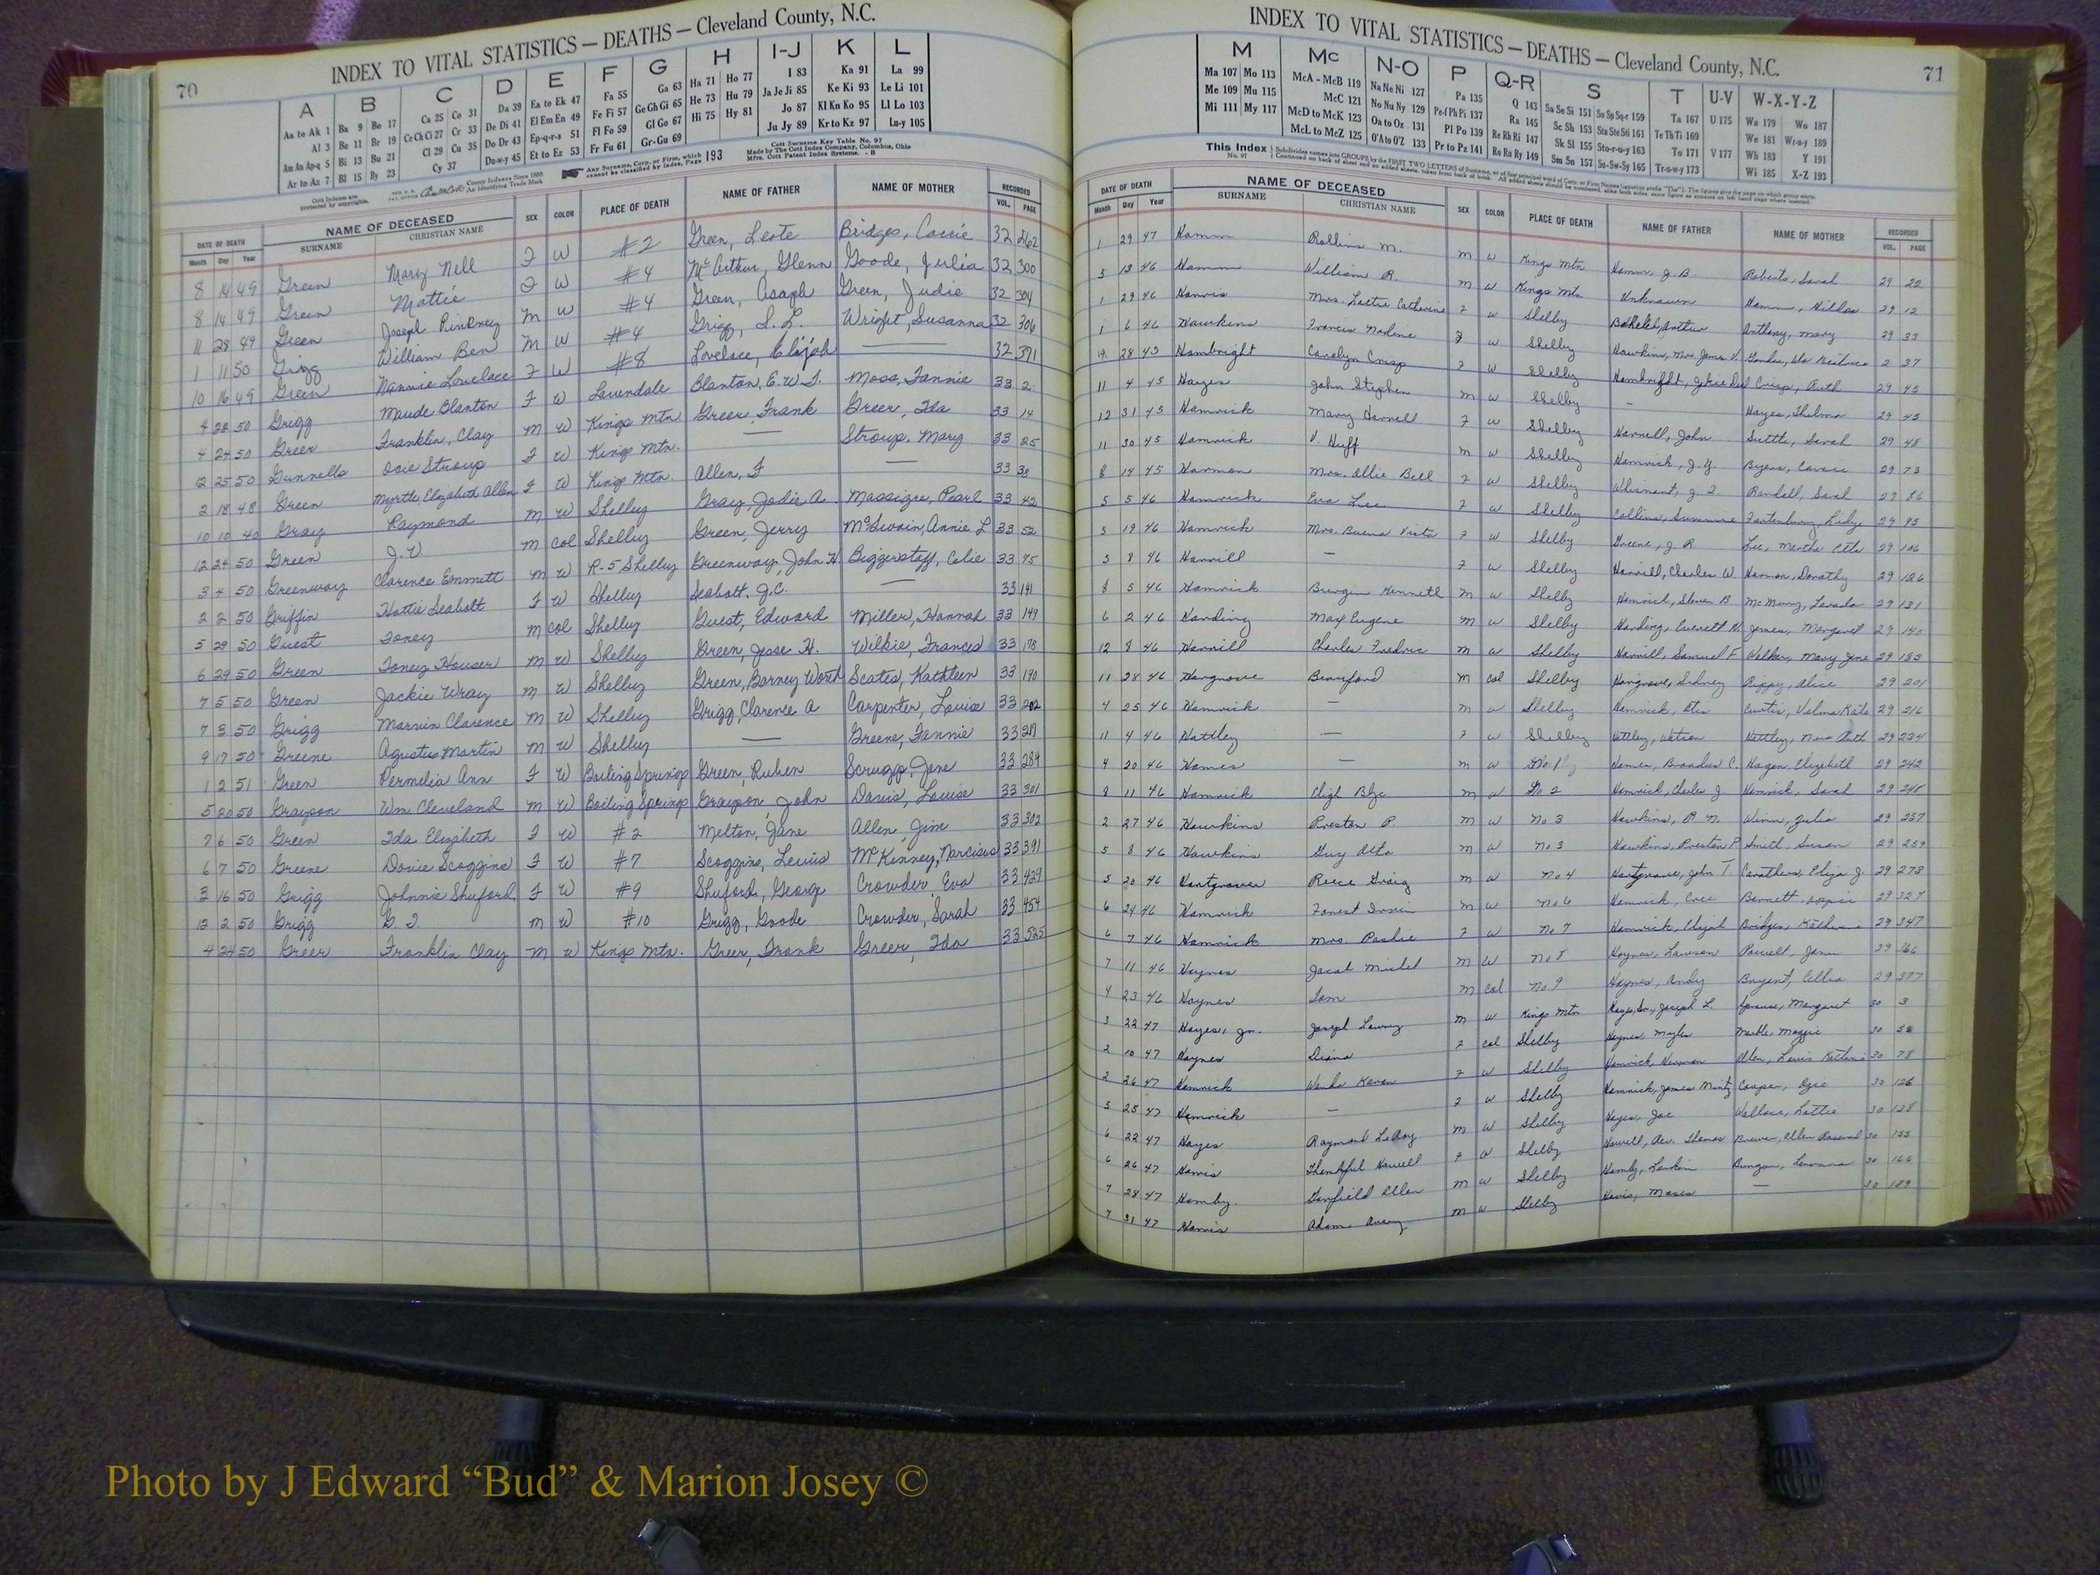 70
INDEX TO VITAL STATISTICS — DEATHS — Cleveland County, N.C.
A B C D E F G H I-J K L
Aa to Ak 1 Ba 9 Bo 17 Ca 25 Co 31 Da 39 Ea to Ek 47 Fa 55 Ga 63 Ha 71 Ho 77 I 83 Ka 91 La 99
Al 3 Be 11 Br 19 Ce Ch Ci 27 Cr 33 De Di 41 El Em En 49 Fe Fi 57 Ge Gh Gi 65 He 73 Hu 79 Ja Je Ji 85 Ke Ki 93 Le Li 101
Am An Ap-q 5 Bi 13 Bu 21 Cl 29 Cu 35 Do Dr 43 Ep-q-r-s 51 Fl Fo 59 Gl Go 67 Hi 75 Hy 81 Jo 87 Kl Kn Ko 95 Ll Lo 103
Ar to Az 7 Bl 15 By 23 Cy 37 Du-w-y 45 Et to Ez 53 Fr Fu 61 Gr-Gu 69 Ju Jy 89 Kr to Kz 97 Lu-y 105
Any Surname, Corp. or Firm, which cannot be classified by index, Page 193
Cott Surname Key Table No. 97
Made by The Cott Index Company, Columbus, Ohio
Mfrs. Cott Patent Index Systems. - B
DATE OF DEATH NAME OF DECEASED SEX COLOR PLACE OF DEATH NAME OF FATHER NAME OF MOTHER RECORDED
Month Day Year SURNAME CHRISTIAN NAME VOL. PAGE
8 14 49 Green Mary Nell F W #2 Green, Leote Bridges, Carrie 32 262
8 14 49 Green Mattie F W #4 McArthur, Glenn Goode, Julia 32 300
11 28 49 Green Joseph Pinkney M W #4 Green, Asaph Green, Judie 32 304
1 11 50 Grigg William Ben M W #4 Grigg, S. L. Wright, Susanna 32 306
10 16 49 Green Nannie Lovelace F W #8 Lovelace, Elijah — 32 371
4 22 50 Grigg Maude Blanton F W Lawndale Blanton, E. W. F. Moss, Fannie 33 2
4 24 50 Greer Franklin, Clay M W Kings Mtn Greer, Frank Greer, Ida 33 14
12 25 50 Gunnells Ocie Stroup F W Kings Mtn. — Stroup, Mary 33 25
2 18 48 Green Myrtle Elizabeth Allen F W Kings Mtn. Allen, F — 33 33
10 10 40 Gray Raymond M W Shelby Gray, Jodie A. Massigee, Pearl 33 42
12 24 50 Green J. V. M Col Shelby Green, Jerry McSwain, Annie L 33 52
3 4 50 Greenway Clarence Emmett M W R-5 Shelby Greenway, John H Biggerstaff, Colie 33 75
2 2 50 Griffin Hattie Seabolt F W Shelby Seabolt, J.C. — 33 141
5 29 50 Guest Toney M Col Shelby Guest, Edward Miller, Hannah 33 149
6 29 50 Green Toney Houser M W Shelby Green, Jesse H. Wilkie, Frances 33 178
7 5 50 Green Jackie Wray M W Shelby Green, Barney Worth Scates, Kathleen 33 190
7 3 50 Grigg Marvin Clarence M W Shelby Grigg, Clarence A Carpenter, Louise 33 202
9 17 50 Greene Agustus Martin M W Shelby — Greene, Fannie 33 217
1 2 51 Green Permelia Ann F W Boiling Springs Green, Ruben Scruggs, Jane 33 284
5 30 50 Grayson Wm. Cleveland M W Boiling Springs Grayson, John Davis, Louise 33 301
7 6 50 Green Ida Elizabeth F W #2 Melton, Jane Allen, Jim 33 302
6 7 50 Greene Dovie Scoggins F W #7 Scoggins, Lewis McKinney, Narcissus 33 391
3 16 50 Grigg Johnnie Shuford F W #9 Shuford, George Crowder, Eva 33 429
12 2 50 Grigg G. T. M W #10 Grigg, Goode Crowder, Sarah 33 454
4 24 50 Greer Franklin Clay M W Kings Mtn. Greer, Frank Greer, Ida 33 525
INDEX TO VITAL STATISTICS — DEATHS — Cleveland County, N.C.
71
M Mc N-O P Q-R S T U-V W-X-Y-Z
Ma 107 Mo 113 McA - McB 119 Na Ne Ni 127 Pa 135 Q 143 Sa Se Si 151 So Sp Sq-r 159 Ta 167 U 175 Wa 179 Wo 187
Me 109 Mu 115 McC 121 No Nu Ny 129 Pe-f Ph Pi 137 Ra 145 Sc Sh 153 Sta Ste Sti 161 Te Th Ti 169 We 181 Wr-u-y 189
Mi 111 My 117 McD to McK 123 Oa to Oz 131 Pl Po 139 Re Rh Ri 147 Sk Sl 155 Sto-r-u-y 163 To 171 V 177 Wh 183 Y 191
McL to McZ 125 O'A to O'Z 133 Pr to Pz 141 Ro Ru Ry 149 Sm Sn 157 Su-Sw-Sy 165 Tr-u-w-y 173 Wi 185 X-Z 193
This Index No. 97
DATE OF DEATH NAME OF DECEASED SEX COLOR PLACE OF DEATH NAME OF FATHER NAME OF MOTHER RECORDED
Month Day Year SURNAME CHRISTIAN NAME VOL. PAGE
1 29 47 Hamm Rollin M. M W Kings Mtn Hamm, J. B. Roberts, Sarah 29 22
3 13 46 Hamm William R. M W Kings Mtn Unknown Hamm, 29 12
1 29 46 Harris Mrs. Lottie Catherine F W Shelby Arthur Anthony, Mary 29 33
1 6 46 Hawkins Francis Nadene F W Shelby Hawkins, Mrs. James V. 2 37
28 43 Hambright Carolyn Crisp F W Shelby Hambright, Crisp, Ruth 29 43
11 4 45 Hayes John Stephen M W Shelby — Hayes, Thelma 29 45
12 31 45 Hamrick Mary Harrell F W Shelby Harrell, John Suttle, Sarah 29 48
11 30 45 Hamrick V. Huff M W Shelby Hamrick, J. Y. Byers, Carrie 29 73
8 14 45 Harmon Mrs. Allie Bell F W Shelby Whisnant, J. L. Randall, Sarah 29 86
5 5 46 Hamrick Eva Lee F W Shelby Collins, 29 95
5 19 46 Hamrick Mrs. Buena Vista F W Shelby Greene, J. R. Lee, Martha Etta 29 106
3 8 46 Harrill — F W Shelby Harrill, Charles W. Harmon, Dorothy 29 126
8 5 46 Hamrick Burgin Kenneth M W Shelby Hamrick, Steven B McMurry, Lavada 29 131
6 2 46 Harding Max Eugene M W Shelby Harding, Everett N. Jones, Margaret 29 140
12 9 46 Harrill Charles Fredric M W Shelby Harrill, Samuel F Walker, Mary Jane 29 183
11 28 46 Hargrove Beauford M Col Shelby Hargrove, Sidney Alice 29 201
4 25 46 Hamrick — M W Shelby Hamrick, Otis Curtis, Velma Kate 29 216
11 4 46 Hattley — F W Shelby Hattley, Watson Hattley, Nora Ruth 29 234
4 20 46 Hames — M W No. 1 Hames, Broadus C. Hagen, Elizabeth 29 242
8 11 46 Hamrick Elijh Blye M W No 2 Hamrick, Charles J. Hamrick, Sarah 29 248
2 27 46 Hawkins Preston P. M W No 3 Hawkins, P. N. Winn, Julia 29 257
5 8 46 Hawkins Guy Alto M W No 3 Hawkins, Preston P Smith, Susan 29 259
5 20 46 Hartgrove Reece Craig M W No 4 Hartgrove, John T Carothers, Eliza J 29 273
6 24 46 Hamrick Forest Irvin M W No 6 Hamrick, Cree Barnett, 29 327
6 7 46 Hamrick Mrs. F W No 7 Hamrick, Elijah Bridges, Katherine 29 347
7 11 46 Haynes Jacob Michel M W No 8 Haynes, Lawson Powell, Jane 29 366
4 23 46 Haynes Sam M Col No 9 Haynes, Andy Bryant, Cellia 29 377
3 22 47 Hayes, Jr. Joseph Lowry M W Kings Mtn Hayes, Sr., Joseph L. Spouse, Margaret 30 3
2 10 47 Haynes Diana F Col Shelby Haynes, Myles Maggie 30
2 26 47 Hamrick Wanda Karen F W Shelby Hamrick, Harmon Allen, 30 78
5 25 47 Hamrick — F W Shelby Hamrick, James Cooper, 30 126
6 22 47 Hayes Raymond LeRoy M W Shelby Hayes, Joe Wallace, Lottie 30 128
6 26 47 Harris Thankful Howell F W Shelby Howell, Rev. Thomas 30 155
7 28 47 Hamby Garfield Allen M W Shelby Hamby, Larkin 30 166
7 31 47 Harris Adam Avery M W Shelby Harris, Moses — 30 189
Photo by J Edward “Bud” & Marion Josey ©